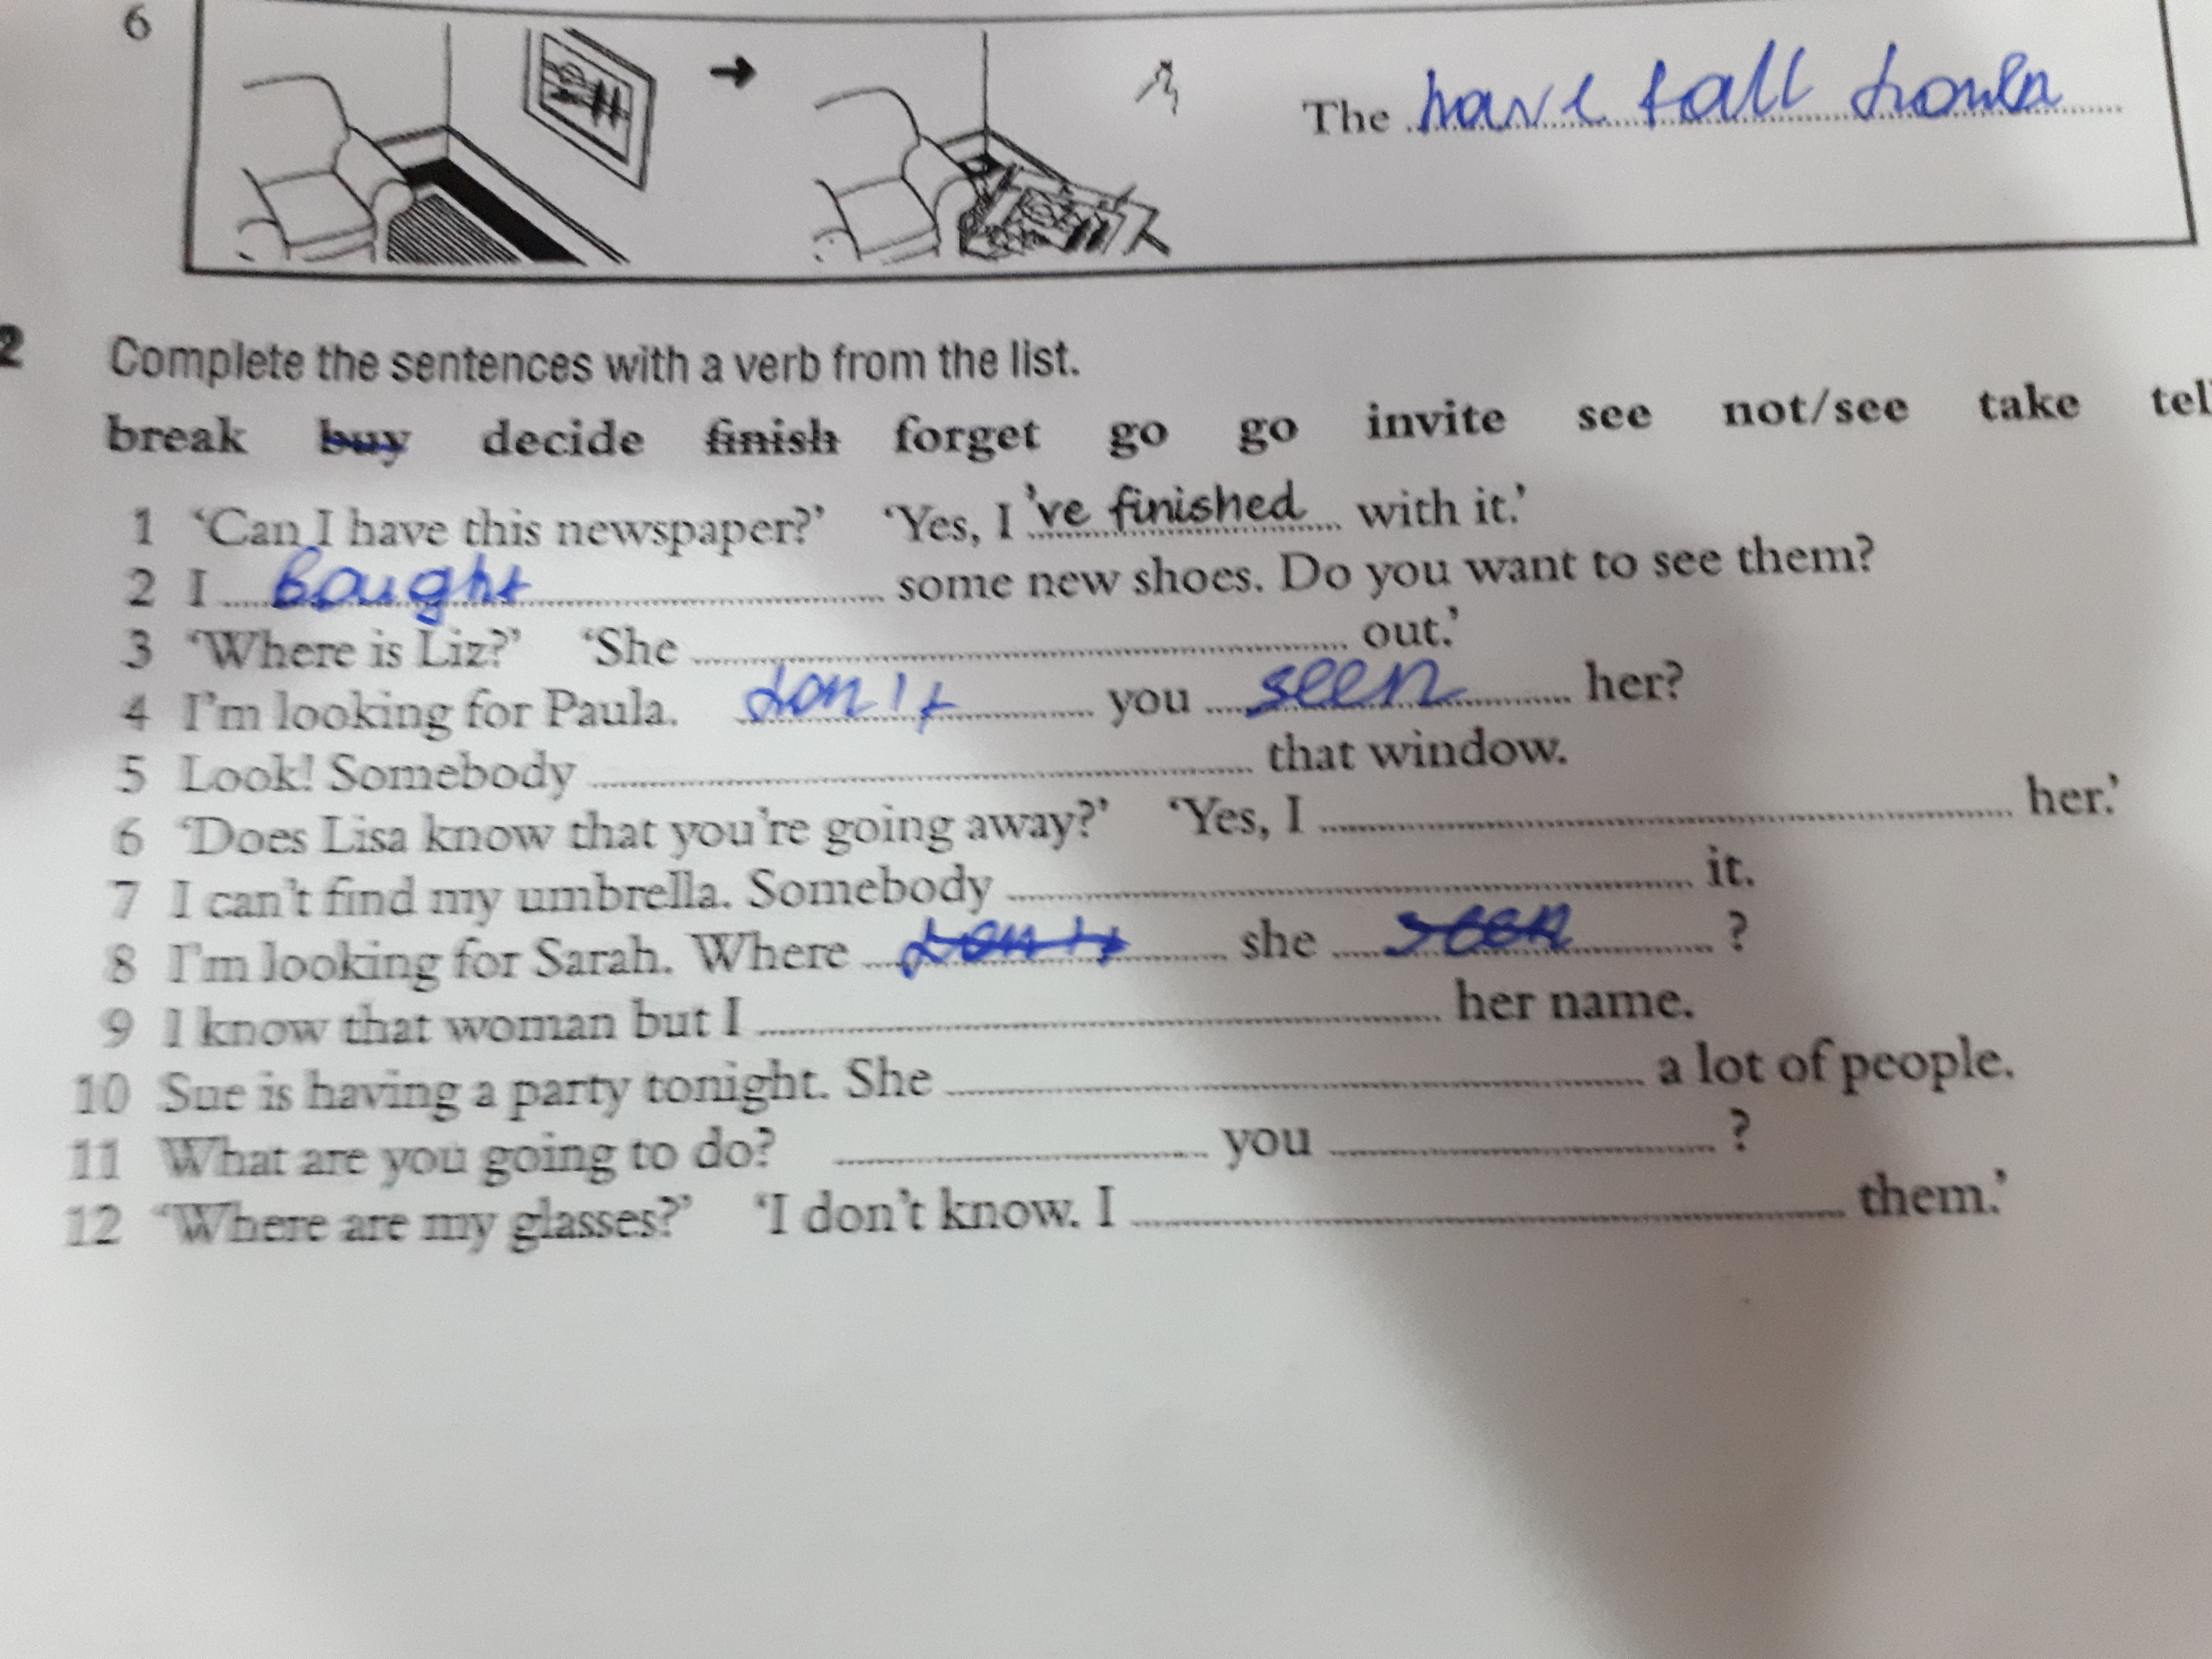 6
The have fall down
2 Complete the sentences with a verb from the list.
break buy decide finish forget go go invite see not/see take tel
1 ‘Can I have this newspaper?’ ‘Yes, I 've finished with it.’
2 I bought some new shoes. Do you want to see them?
3 ‘Where is Liz?’ ‘She ........ out.’
4 I'm looking for Paula. don't you seen her?
5 Look! Somebody ........ that window.
6 ‘Does Lisa know that you're going away?’ ‘Yes, I ........ her.’
7 I can't find my umbrella. Somebody ........ it.
8 I'm looking for Sarah. Where don't she seen ?
9 I know that woman but I ........ her name.
10 Sue is having a party tonight. She ........ a lot of people.
11 What are you going to do? ........ you ........ ?
12 ‘Where are my glasses?’ ‘I don't know. I ........ them.’